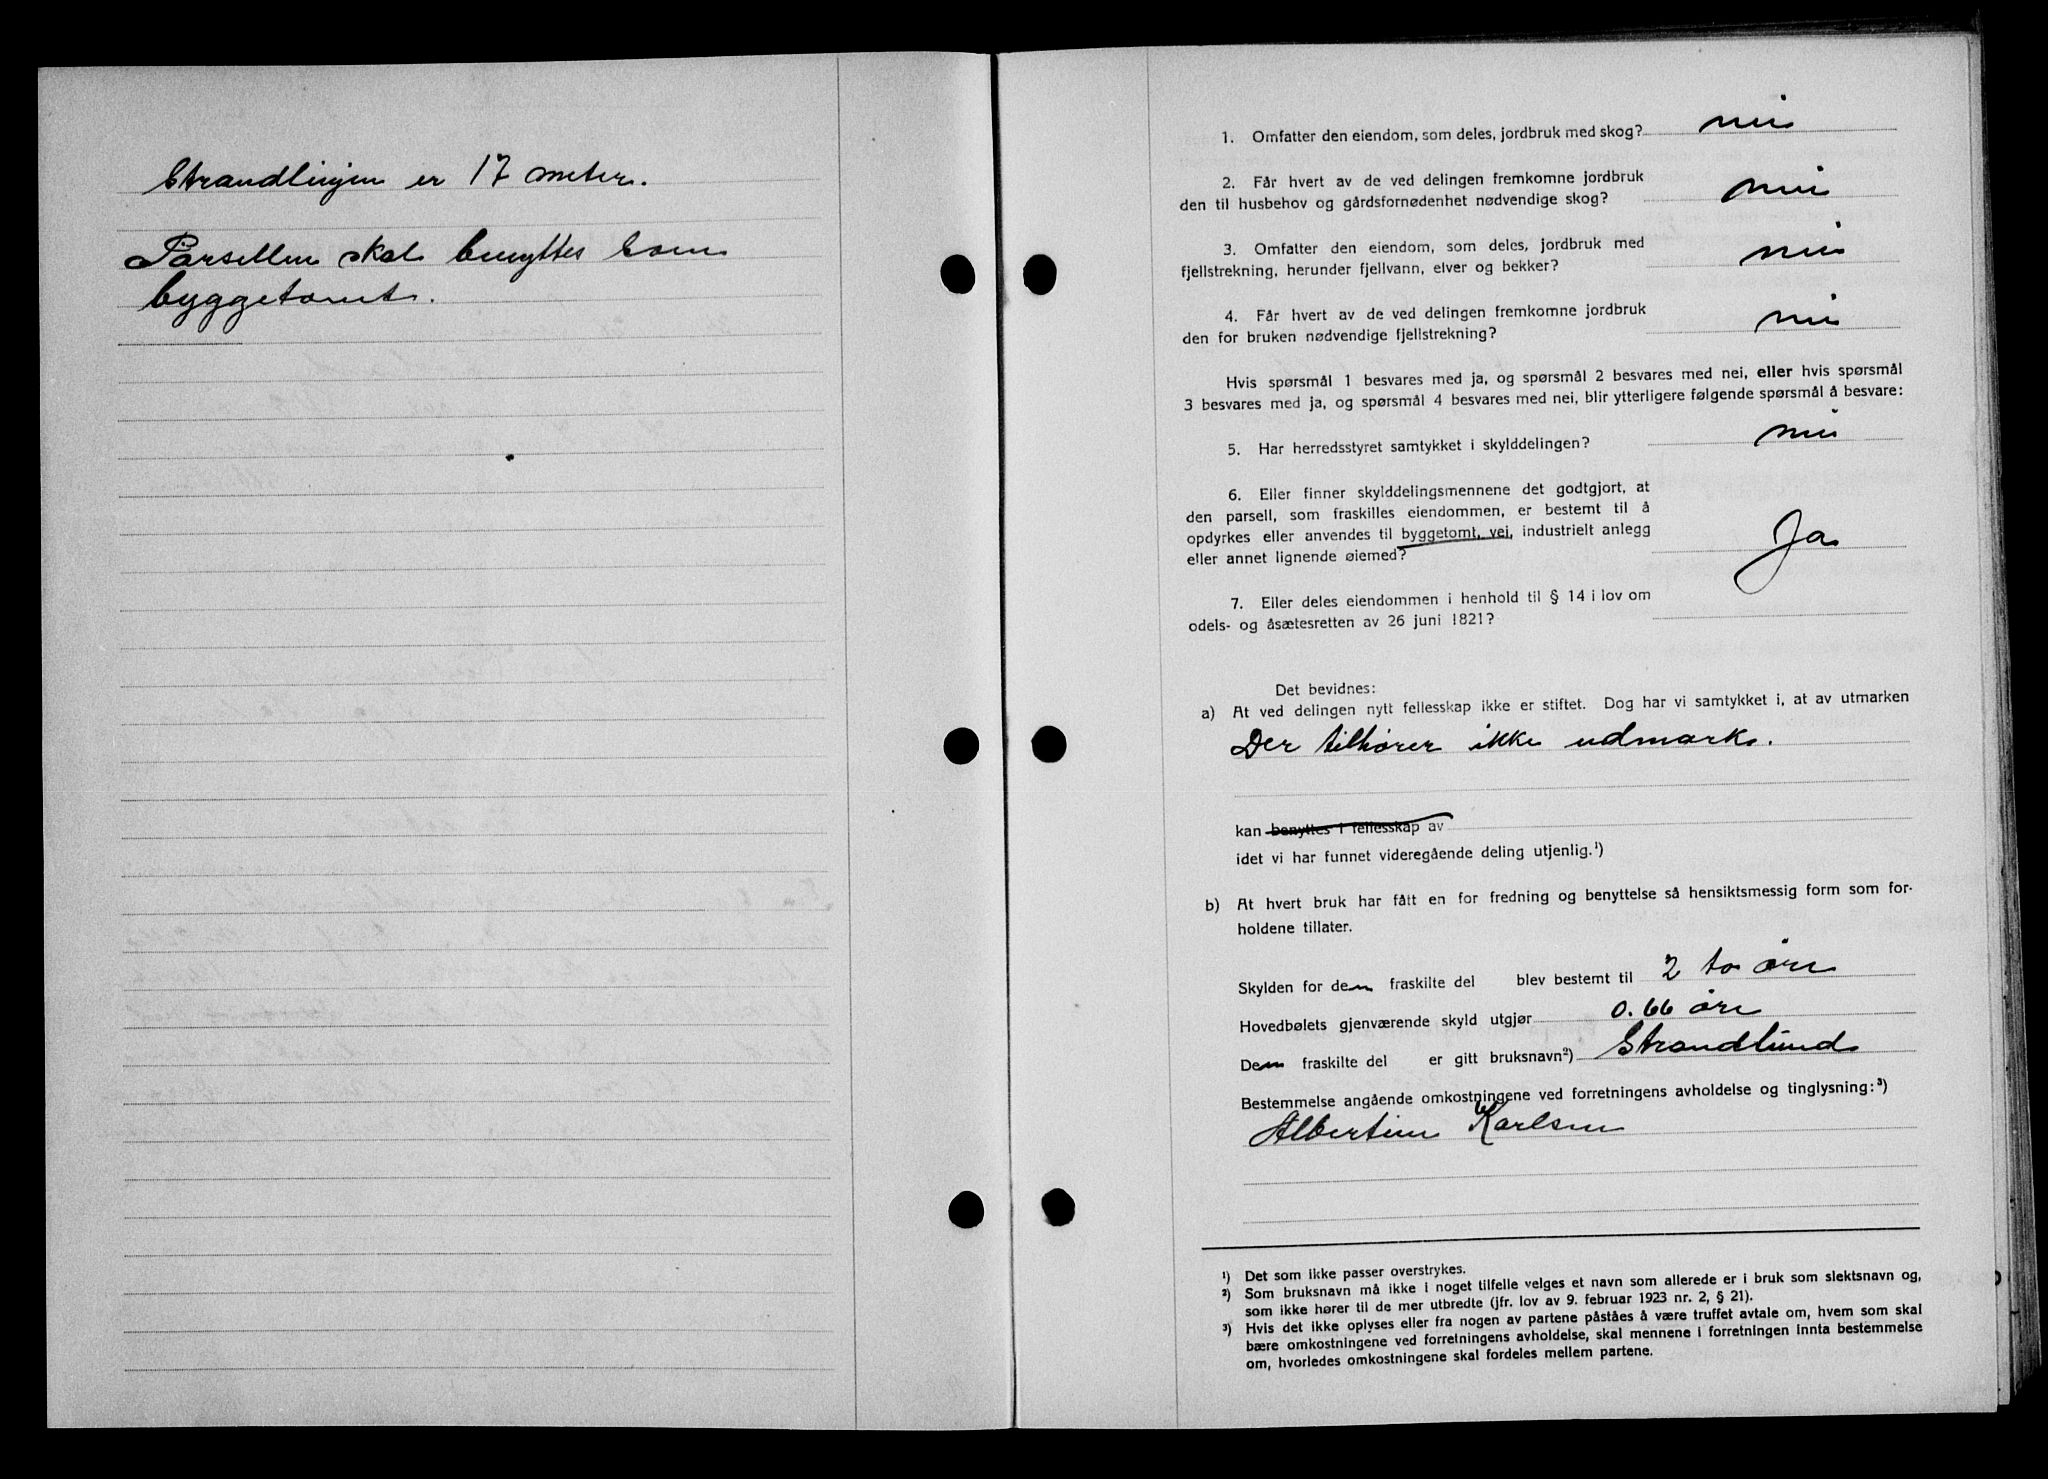 Strandlinjen er 17 meter.
Parsellen skal benyttes som
byggetomt.
1. Omfatter den eiendom, som deles, jordbruk med skog? nei
2. Får hvert av de ved delingen fremkomne jordbruk
den til husbehov og gårdsfornødenhet nødvendige skog? nei
3. Omfatter den eiendom, som deles, jordbruk med
fjellstrekning, herunder fjellvann, elver og bekker? nei
4. Får hvert av de ved delingen fremkomne jordbruk
den for bruken nødvendige fjellstrekning? nei
Hvis spørsmål 1 besvares med ja, og spørsmål 2 besvares med nei, eller hvis spørsmål
3 besvares med ja, og spørsmål 4 besvares med nei, blir ytterligere følgende spørsmål å besvare:
5. Har herredsstyret samtykket i skylddelingen? nei
6. Eller finner skylddelingsmennene det godtgjort, at
den parsell, som fraskilles eiendommen, er bestemt til å
opdyrkes eller anvendes til byggetomt, vei, industrielt anlegg
eller annet lignende øiemed? Ja
7. Eller deles eiendommen i henhold til § 14 i lov om
odels- og åsætesretten av 26 juni 1821?
Det bevidnes:
a) At ved delingen nytt fellesskap ikke er stiftet. Dog har vi samtykket i, at av utmarken
Der tilhører ikke udmark.
kan benyttes i fellesskap av
idet vi har funnet videregående deling utjenlig.¹)
b) At hvert bruk har fått en for fredning og benyttelse så hensiktsmessig form som for-
holdene tillater.
Skylden for den fraskilte del blev bestemt til 2 to øre
Hovedbølets gjenværende skyld utgjør 0.66 øre
Den fraskilte del er gitt bruksnavn²) Strandlund
Bestemmelse angående omkostningene ved forretningens avholdelse og tinglysning:³)
Albertine Karlsen
¹) Det som ikke passer overstrykes.
²) Som bruksnavn må ikke i noget tilfelle velges et navn som allerede er i bruk som slektsnavn og,
som ikke hører til de mer utbredte (jfr. lov av 9. februar 1923 nr. 2, § 21).
³) Hvis det ikke oplyses eller fra nogen av partene påståes å være truffet avtale om, hvem som skal
bære omkostningene ved forretningens avholdelse, skal mennene i forretningen innta bestemmelse
om, hvorledes omkostningene skal fordeles mellem partene.